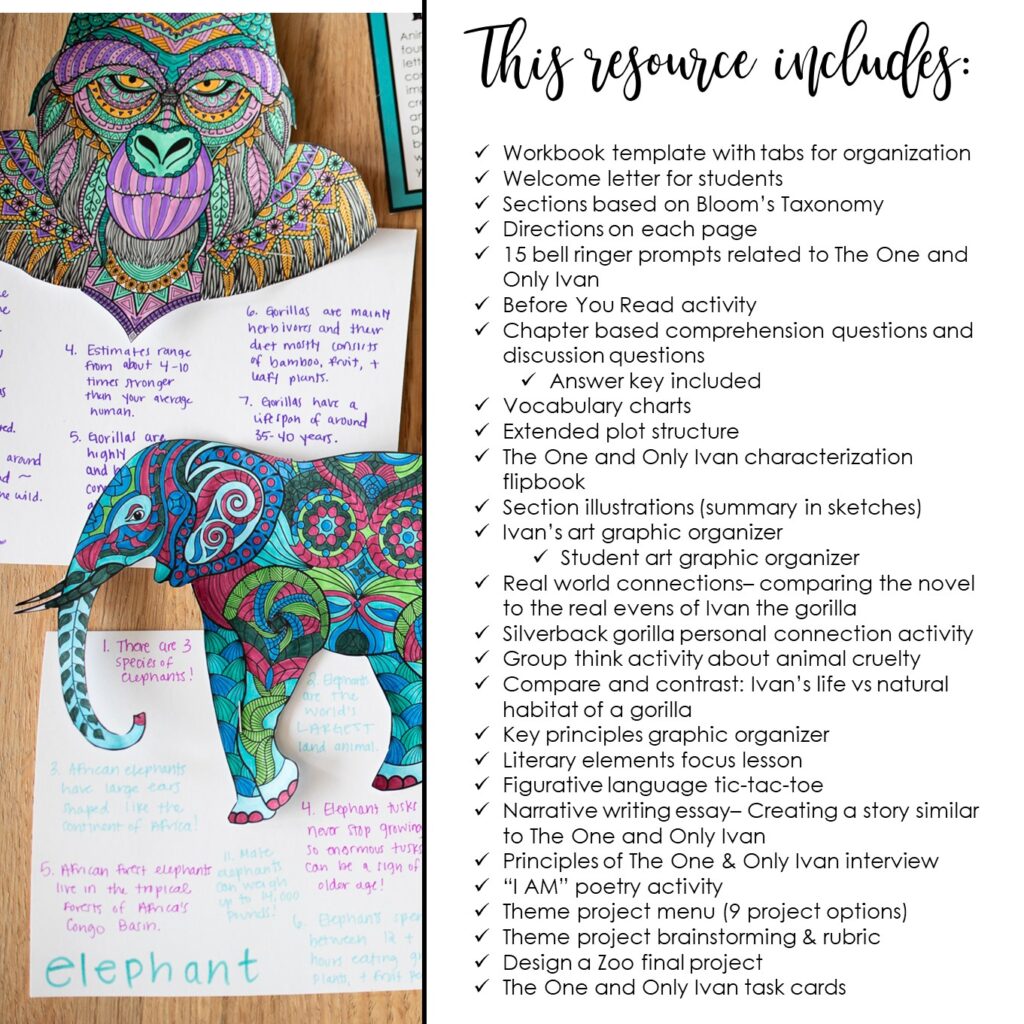 This resource includes:
✓ Workbook template with tabs for organization
✓ Welcome letter for students
✓ Sections based on Bloom's Taxonomy
✓ Directions on each page
✓ 15 bell ringer prompts related to The One and
Only Ivan
✓ Before You Read activity
✓ Chapter based comprehension questions and
discussion questions
✓ Answer key included
✓ Vocabulary charts
✓ Extended plot structure
✓ The One and Only Ivan characterization
flipbook
✓ Section illustrations (summary in sketches)
✓ Ivan's art graphic organizer
✓ Student art graphic organizer
✓ Real world connections– comparing the novel
to the real evens of Ivan the gorilla
✓ Silverback gorilla personal connection activity
✓ Group think activity about animal cruelty
✓ Compare and contrast: Ivan's life vs natural
habitat of a gorilla
✓ Key principles graphic organizer
✓ Literary elements focus lesson
✓ Figurative language tic-tac-toe
✓ Narrative writing essay– Creating a story similar
to The One and Only Ivan
✓ Principles of The One & Only Ivan interview
✓ "I AM" poetry activity
✓ Theme project menu (9 project options)
✓ Theme project brainstorming & rubric
✓ Design a Zoo final project
✓ The One and Only Ivan task cards
4. Estimates range
from about 4-10
times stronger
than your average
human.
5. Gorillas are
highly
and
6. Gorillas are mainly
herbivores and their
diet mostly consists
of bamboo, fruit, +
leafy plants.
7. Gorillas have a
lifespan of around
35-40 years.
around
wild.
1. There are 3
species of
elephants!
2. Elephants
are the
world's
LARGEST
land animal.
3. African elephants
have large ears
shaped like the
continent of Africa!
4. Elephant tusks
never stop growing
so enormous tusks
can be a sign of
older age!
5. African forest elephants
live in the tropical
forests of Africa's
Congo Basin.
11. Male
elephants
can weigh
up to 14,000
pounds!
6. Elephants
between 12 +
hours eating
plants, + fruit
elephant